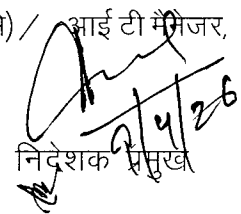 ) / आई टी मैनेजर,
9/4/26
निदेशक प्रमुख